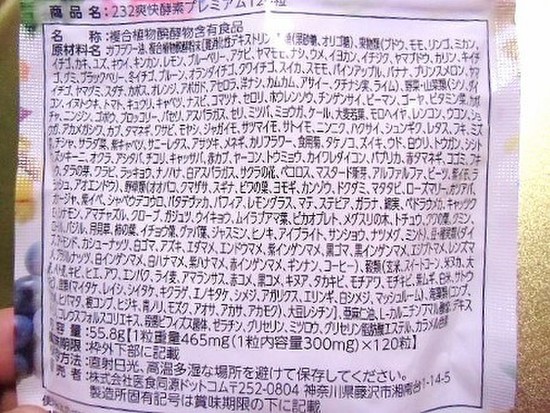 商品名:232爽快酵素プレミアム12 粒
名 称:複合植物醗酵物含有食品
原材料名:サフラワー油、複合植物醗酵粉末(難消化性デキストリン、 糖(黒砂糖、オリゴ糖)、果物類(ブドウ、モモ、リンゴ、ミカン、
イチゴ、カキ、ユズ、キウイ、キンカン、レモン、ブルーベリー、アケビ、ヤマモモ、ナシ、ウメ、イヨカン、イチジク、ヤマブドウ、カリン、キイ
チゴ、グミ、ブラックベリー、冬イチゴ、プルーン、オランダイチゴ、クワイチゴ、スイカ、スモモ、パインアップル、バナナ、プリンスメロン、ヤマ
イチゴ、ヤマグミ、スダチ、カボス、オレンジ、アボガド、アセロラ、洋ナシ、カムカム、アサイー、クチナシ実、ライム)、野菜・山菜類(シソ、ダイ
コン、イヌトウキ、トマト、キュウリ、キャベツ、ナスビ、コマツナ、セロリ、ホウレンソウ、チンゲンサイ、ピーマン、ゴーヤ、ビタミン菜、カボ
チャ、ニンジン、ゴボウ、ブロッコリー、パセリ、アスパラガス、セリ、ミツバ、ミョウガ、ケール、大麦若葉、モロヘイヤ、レンコン、ウコン、ショ
ウガ、アカメガシワ、カブ、タマネギ、ワサビ、モヤシ、ジャガイモ、サツマイモ、サトイモ、ニンニク、ハクサイ、シュンギク、レタス、フキ、ミズ
チシャ、サラダ菜、紫キャベツ、サニーレタス、アサツキ、ネギ、カリフラワー、食用菊、タケノコ、ズイキ、ウド、白ウリ、トウガン、シシト
ズッキーニ、オクラ、アシタバ、チコリ、キャッサバ、赤カブ、ヤーコン、トウミョウ、カイワレダイコン、パプリカ、赤タマネギ、ゴゴミ、フキ
トウ、タラの芽、クワラ、ラッキョウ、ナノハナ、白アスパラガス、サクラの花、ベコロス、マスタード新芽、アルファルファ、ビーツ、紫イモ、
ラッシュ、アオエンドウ)、野草類(オオバコ、クマザサ、スギナ、ビワの葉、ヨモギ、カンゾウ、ドクダミ、マタタビ、ローズマリー、カワラ
ガージャ、紫イペ、シャバウデコウバ、パタデヴァカ、パフィア、レモングラス、マテ、ステビア、ガラナ、綿実、ペドラウメカ、キャッツ
ロ)ケモン、アマチャヅル、クローブ、ガジュツ、ウイキョウ、ムイラプアマ葉、ピカオプレト、メグスリの木、トチュウ、クワの葉、クミン、
ローバジル、月見草、柿の葉、イチョウ葉、グァバ葉、ジャスミン、ヒノキ、アイブライト、サンショウ、ナツメグ、ミント)、豆・種実類(ダイ
アーモンド、カシューナッツ、白ゴマ、アズキ、エダマメ、エンドウマメ、紫インゲンマメ、黒ゴマ、黒インゲンマメ、エジプトマメ、レンズマ
ブラルピーナッツ、白インゲンマメ、白ハナマメ、紫ハナマメ、赤インゲンマメ、ギンナン、コーヒー)、穀類(玄米、スイートコーン、米ヌカ、大
麦、キビ、ヒエ、アワ、エンバク、ライ麦、アマランサス、赤コメ、黒コメ、キヌア、タカキビ、モチアワ、モチキビ、紫ムギ、白米、サワ
類(マイタケ、レイシ、シイタケ、キクラゲ、エノキタケ、シメジ、アガリクス、エリンギ、白シメジ、マッシュルーム)、海藻類(コンブ、
ヒバマタ、根コンブ、ヒジキ、青ノリ、モズク、アオサ、アカサ、アカモク)、大豆レシチン]、亜麻仁油、L-カルニチンフマル酸塩、デキス
コレウスフォルスコリエキス、殺菌ビフィズス菌体、ゼラチン、グリセリン、ミツロウ、グリセリン脂肪酸エステル、カラメル色素
内容量:55.8g[1粒重量465mg(1粒内容量300mg)×120粒]
賞味期限:枠外下部に記載
保存方法:直射日光、高温多湿な場所を避けて保存してください。
販売者:株式会社医食同源ドットコム〒252-0804 神奈川県藤沢市湘南台1-14-5
製造所固有記号は賞味期限の下に記載